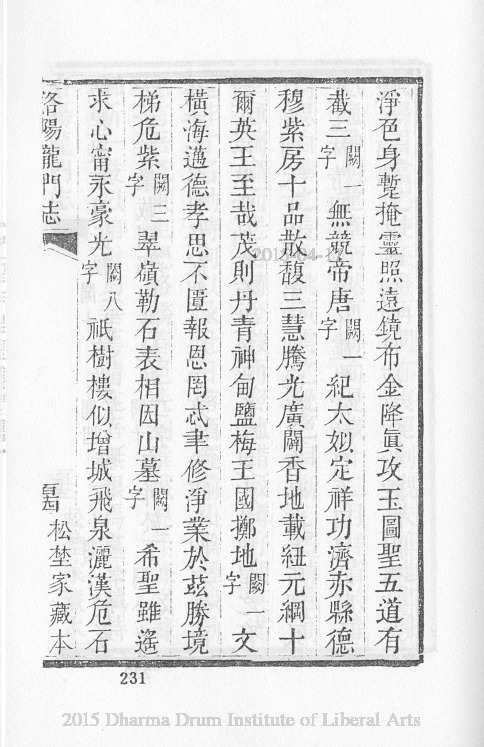 淨色身蹔掩靈照遠鏡布金降眞攻玉圖聖五道有
截三闕一字無競帝唐闕一字紀太姒定祥功濟赤縣德
穆紫房十品散馥三慧騰光廣闢香地載紐元綱十
爾英王至哉茂則丹青神甸鹽梅王國擲地闕一字文
橫海邁德孝思不匱報恩罔忒聿修淨業於茲勝境
梯危紫闕三字翠嶺勒石表相因山墓闕一字希聖雖遙
求心甯永豪光闕八字祇樹樓似增城飛泉灑漢危石
洛陽龍門志
松埜家藏本
231
2015 Dharma Drum Institute of Liberal Arts